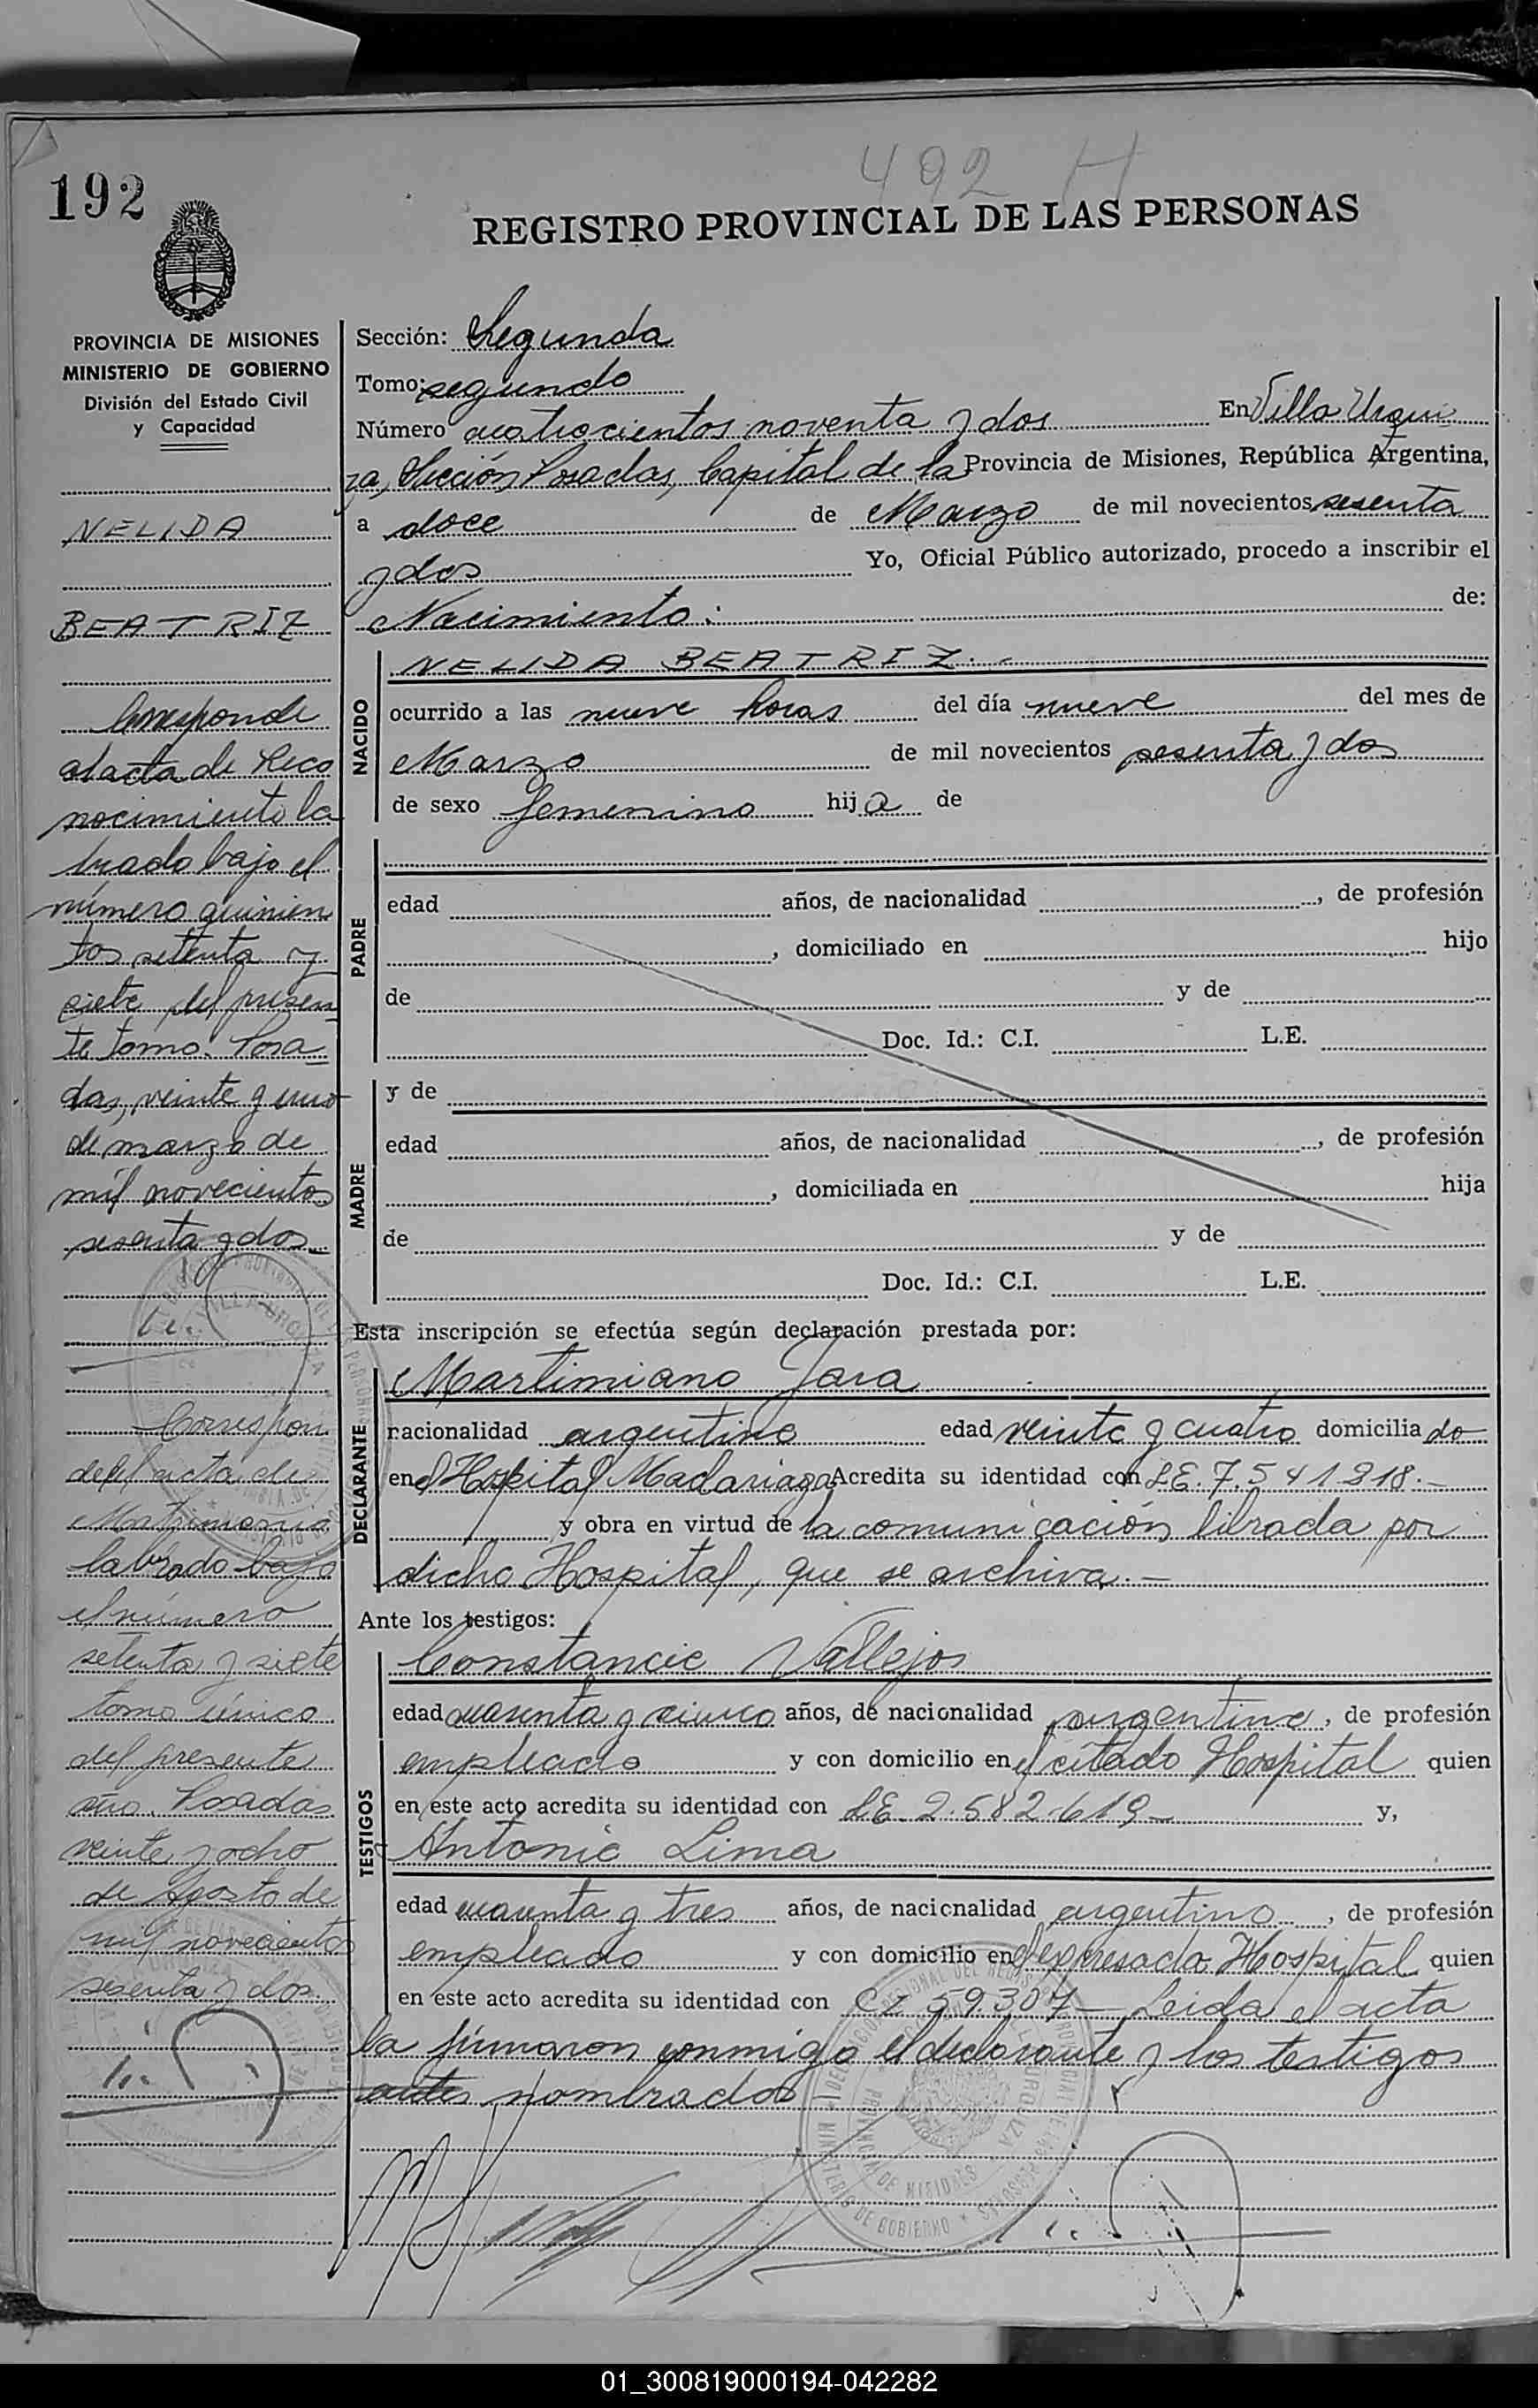 492 H
192
REGISTRO PROVINCIAL DE LAS PERSONAS
PROVINCIA DE MISIONES
MINISTERIO DE GOBIERNO
División del Estado Civil
y Capacidad
NELIDA
BEATRIZ
Corresponde
al acta de Reco
nocimiento la
brado bajo el
número quinien
tos setenta y
siete del presen
te tomo. Posa
das, veinte y uno
de marzo de
mil novecientos
sesenta y dos
Correspon
de al acta de
Matrimonio
labrado bajo
el número
setenta y siete
tomo único
del presente
año. Posadas
veinte y ocho
de Agosto de
mil novecientos
sesenta y dos.
Sección: Segunda
Tomo: segundo
Número cuatrocientos noventa y dos En Villa Urqui
za, Sección Posadas, Capital de la Provincia de Misiones, República Argentina,
a doce de Marzo de mil novecientos sesenta
y dos Yo, Oficial Público autorizado, procedo a inscribir el
Nacimiento: de:
NACIDO
NELIDA BEATRIZ.-
ocurrido a las nueve horas del día nueve del mes de
Marzo de mil novecientos sesenta y dos
de sexo femenino hija de
PADRE
edad años, de nacionalidad , de profesión
, domiciliado en hijo
de y de
Doc. Id.: C.I. L.E.
MADRE
y de
edad años, de nacionalidad , de profesión
, domiciliada en hija
de y de
Doc. Id.: C.I. L.E.
Esta inscripción se efectúa según declaración prestada por:
DECLARANTE
Martimiano Jara
nacionalidad argentino edad veinte y cuatro domiciliado
en el Hospital Madariaga Acredita su identidad con L.E. 7.541.818.-
y obra en virtud de la comunicación librada por
dicho Hospital, que se archiva.-
Ante los testigos:
TESTIGOS
Constancio Vallejos
edad cuarenta y cinco años, de nacionalidad argentino, de profesión
empleado y con domicilio en el citado Hospital quien
en este acto acredita su identidad con L.E. 2.582.619- y,
Antonio Lima
edad cuarenta y tres años, de nacionalidad argentino, de profesión
empleado y con domicilio en el expresado Hospital quien
en este acto acredita su identidad con 59.307- Leida el acta
la firmaron conmigo el declarante y los testigos
antes nombrados
01_300819000194-042282